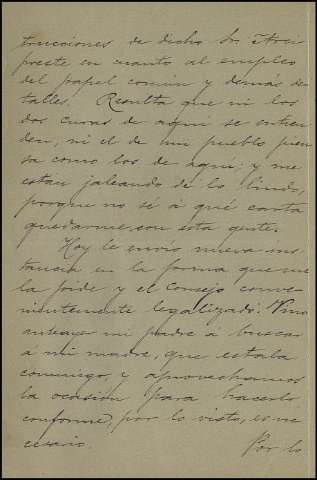 trucciones de dicho Sr. Arci
preste en cuanto al empleo
del papel común y demás de
talles. Resulta que ni los
dos curas de aquí se entien
den, ni el de mi pueblo pien
sa como los de aquí: y me
estan jaleando de lo lindo,
porque no sé á qué carta
quedarme con esta gente.
Hoy le envío nueva ins
tancia en la forma que me
la pide y el Consejo conve
nientemente legalizado. Vino
anteayer mi padre á buscar
á mi madre, que estaba
conmigo, y aprovechamos
la ocasión para hacerlo
conforme, por lo visto, es ne
cesario.
Por lo